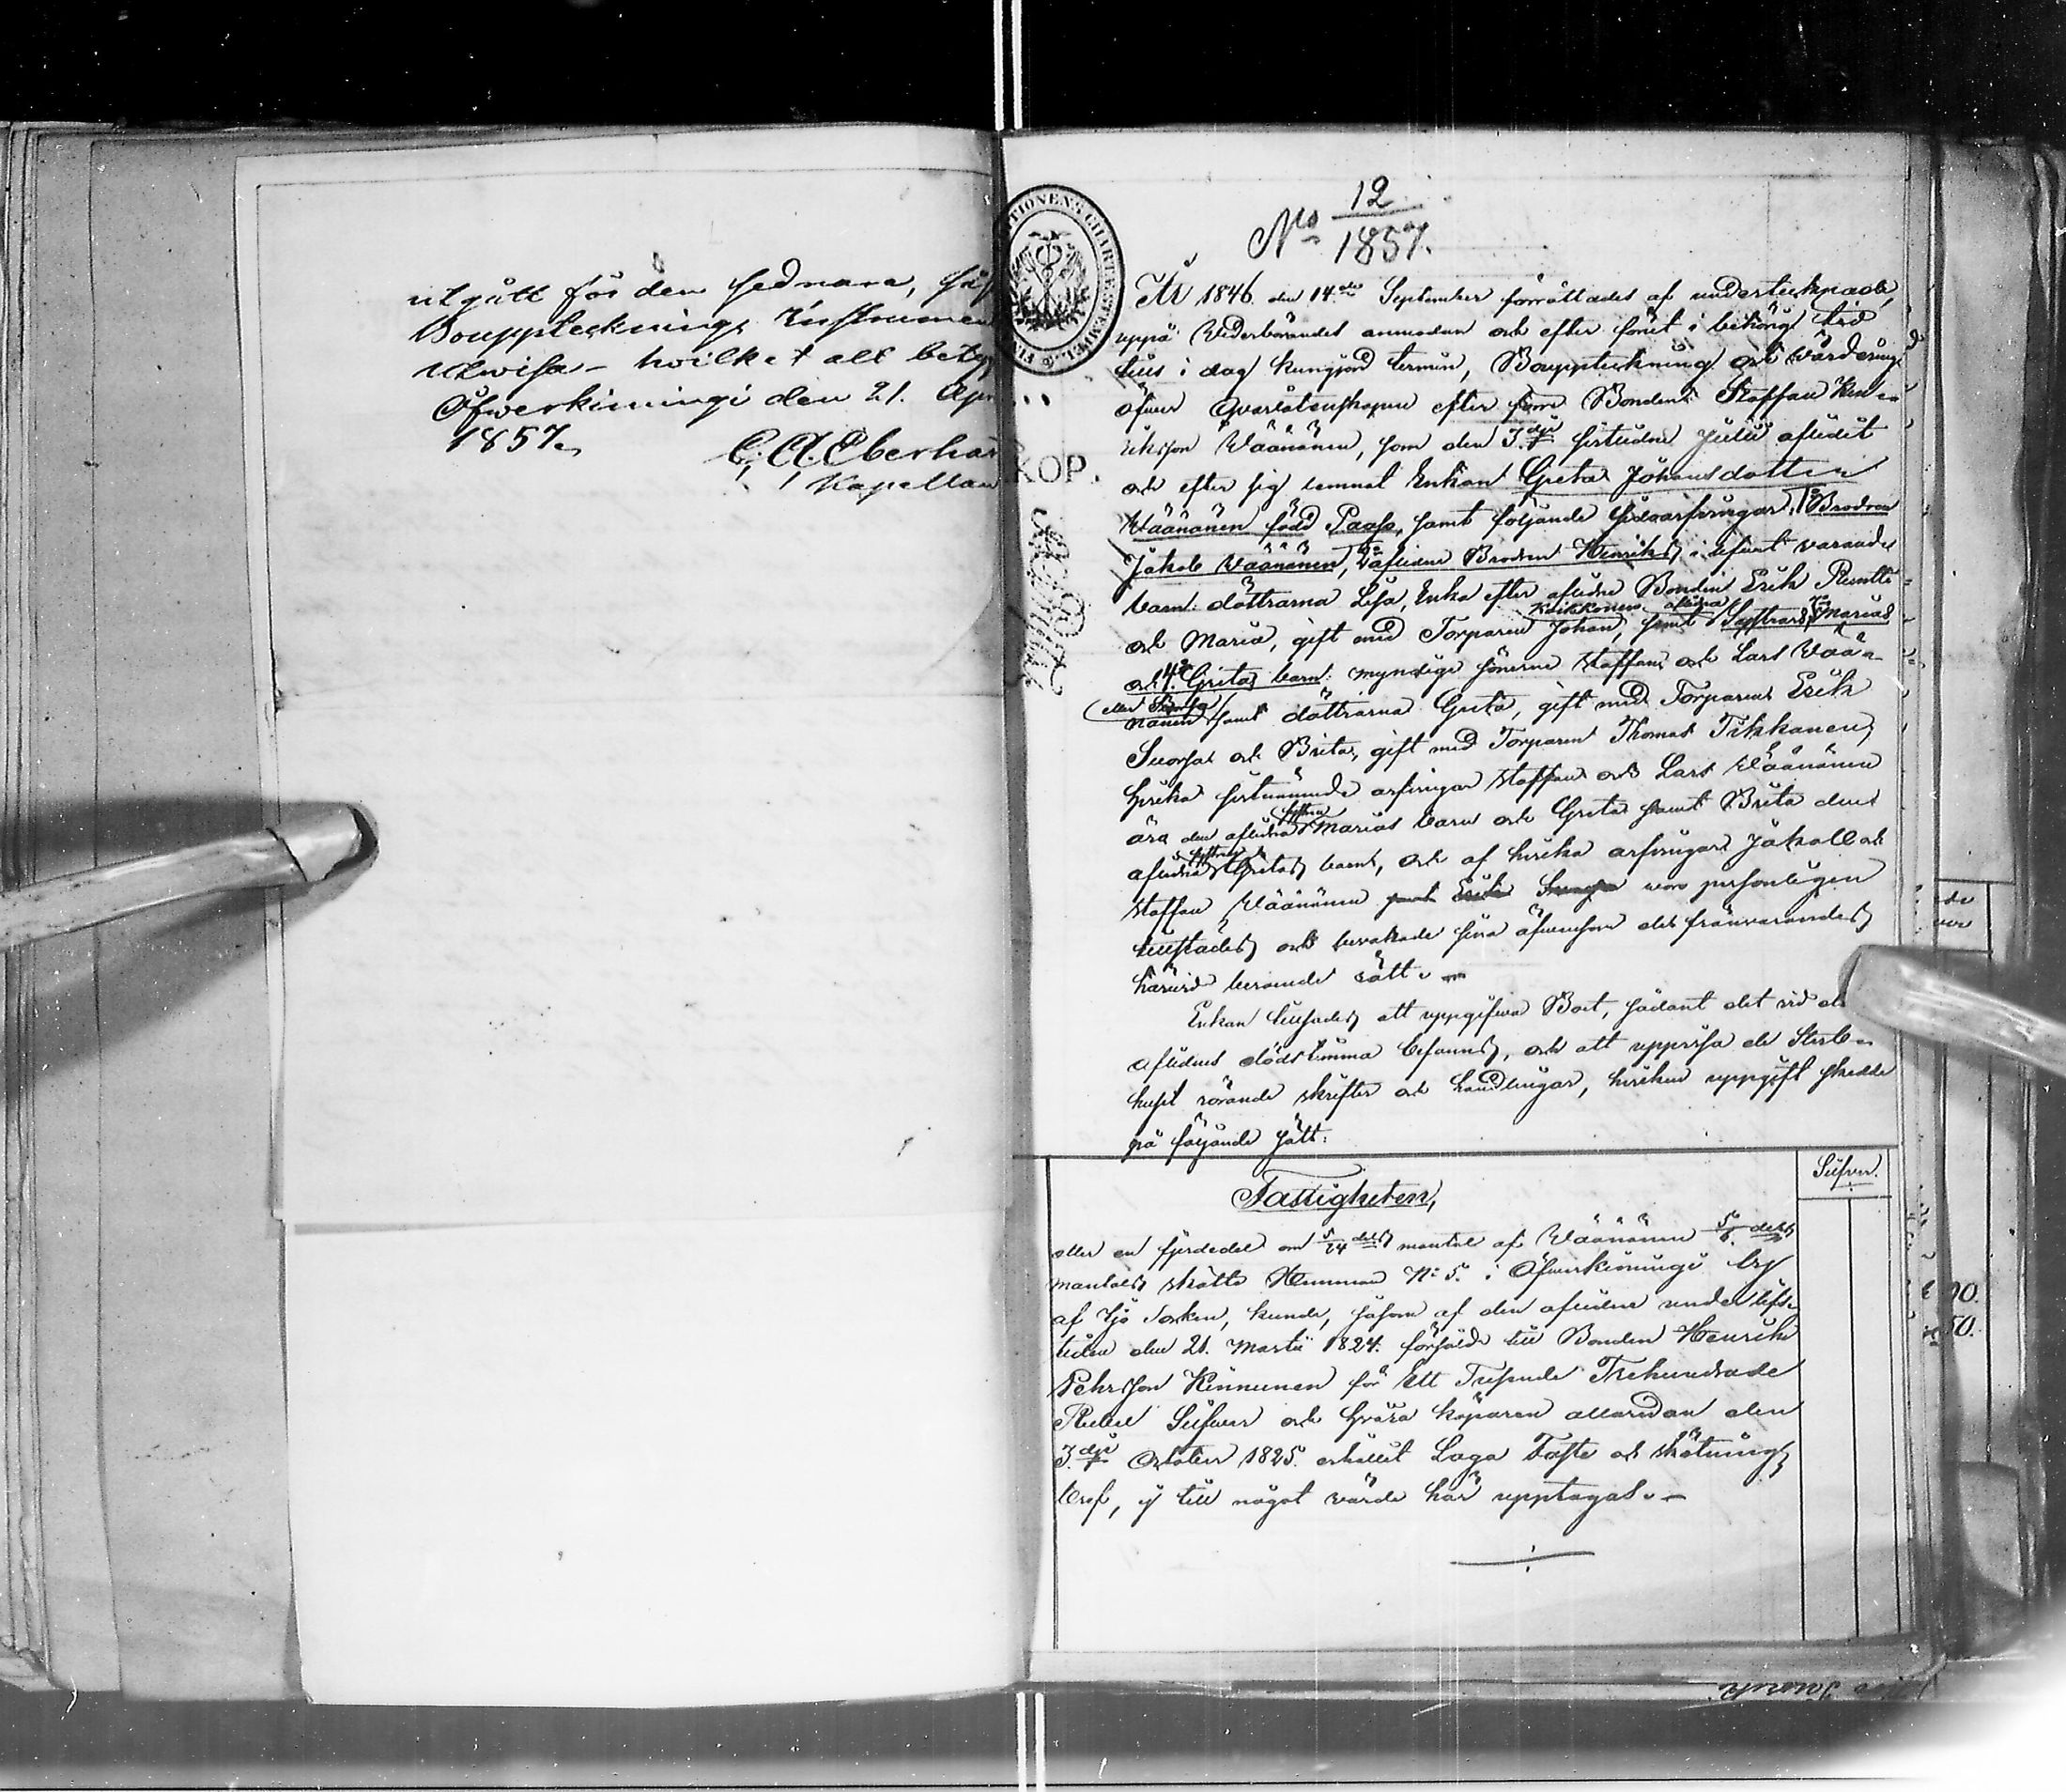 utgått för den sednare,
Boupptecknings Instrumen
utwisa – hvilket allt bety
Öfwerkiminge den 21. Apr
1857.
C. A. Eberhar
Kapellan
TIONENS CHARTÆ STEMPEL
KOP.
No 12/1857.
År 1846 den 14de September förrättades af undertecknade,
uppå Vederbörandes anmodan och efter förut i behörig tid
till i dag kungjord termin, Bouppteckning och värdering
öfver qvarlåtenskapen efter Bonden Staffan Hen-
riksson Väänänen, som den 3dje sistledne Julii aflidit
och efter sig lemnat Enkan Greta Johansdotter
Väänänen född Paaso, samt följande sidoarfvingar, 1o Brodren
Jakob Väänänen, 2o aflidne Brodren Henriks, i lifvet varande
barn: döttrarna Lisa, Enka efter aflidne Bonden Erik
Kaikkonen aflidna
och Maria, gift med Torparen Johan, samt Systrars 3o Marias
och 4o Gretas barn: myndige sönerne Staffan och Lars Vää-
eller
nänen samt döttrarna Greta, gift med Torparen Erik
Suorsa och Brita, gift med Torparen Thomas Tikkanen,
hvilka sistnämnde arfvingar Staffan och Lars Väänänen
syster
äro den aflidna Marias barn och Greta samt Brita den
systrens
aflidna Gretas barn, och af hvilka arfvingar Jakob och
Staffan Väänänen samt Erik Suorsa voro personligen
tillstädes och bevakade sina äfvensom de frånvarandes
härvid beroende rätt. –
Enkan tillsades att uppgifva Boet, sådant det vid den
aflidnes dödstimma befanns, och att uppvisa de Sterb-
huset rörande skrifter och handlingar, hvilken uppgift skedde
på följande sätt:
Silfver.
Fastigheten,
eller en fjerdedel om 5/24 dels mantal af Väänänen 5/6 dels
mantals skatte Hemman No 5. i Öfverkiminge by
af Ijo Socken, kunde, såsom af den aflidne under lifs-
tiden den 21. Martii 1824. försåld till Bonden Henrik
Pehrsson Kinnunen för Ett Tusende Trehundrade
Rubel Silfver och hvara köparen allaredan den
3dje October 1825. erhållit Laga Fasta och skötnings
bref, ej till något värde här upptagas. –